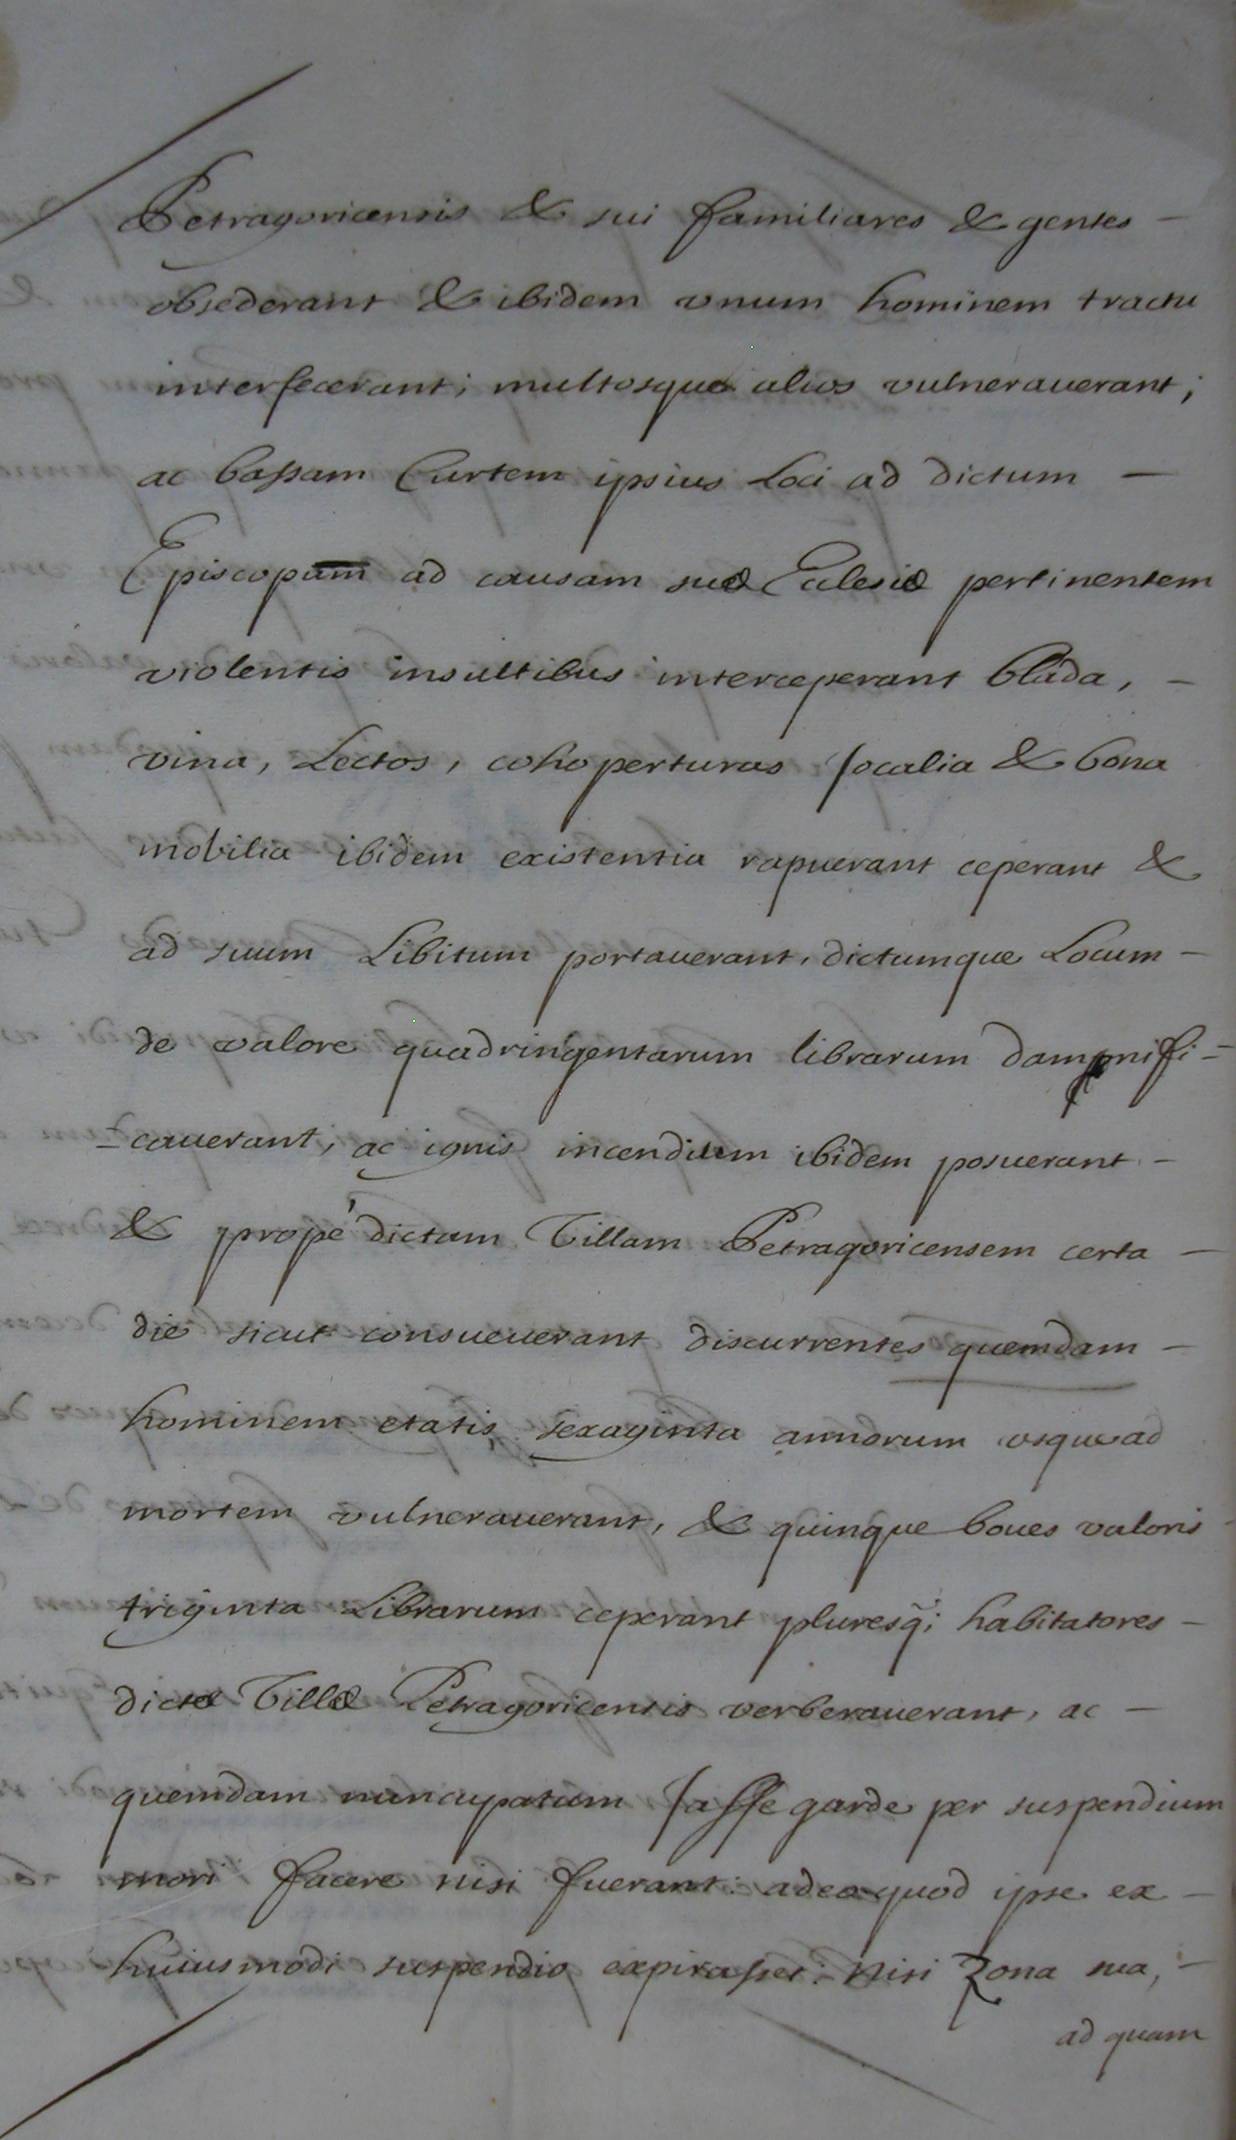 Petragoricensis & sui familiares & gentes –
obsederant & ibidem vnum hominem tractu
interfecerant; multosque alios vulnerauerant;
ac bassam Curtem ipsius Loci ad dictum –
Episcopum ad causam suæ Eclesiæ pertinentem
violentis insultibus interceperant blada, –
vina, Lectos, cohoperturas Jocalia & bona
mobilia ibidem existentia rapuerant ceperant &
ad suum Libitum portauerant, dictumque Locum –
de valore quadringentarum librarum dampnifi=
=cauerant, ac ignis incendium ibidem posuerant –
& propè dictam Villam Petragoricensem certa –
die sicut consueuerant discurrentes quemdam –
hominem etatis sexaginta annorum vsque ad
mortem vulnerauerant, & quinque boues valoris
triginta Librarum ceperant pluresq; habitatores –
dictæ Villæ Petragoricensis verberauerant, ac –
quemdam nuncupatum Jasse garde per suspendium
mori facere nisi fuerant: adeo quod ipse ex –
huiusmodi suspendio expirasset: Nisi Zona sua, –
ad quam